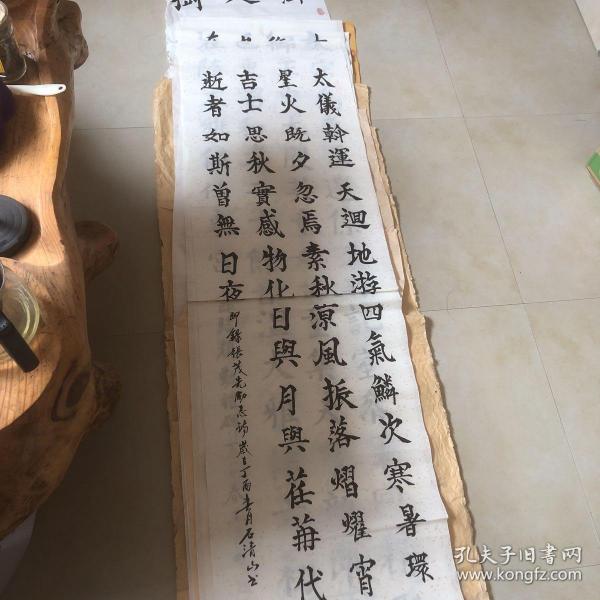 太儀斡運天迴地游四氣鱗次寒暑環
星火既夕忽焉素秋涼風振落熠燿宵
吉士思秋實感物化日與月與荏苒代
逝者如斯曾無日夜
即錄張茂先勵志詩歲在丁酉春月石清山書
孔夫子旧书网
www.kongfz.com